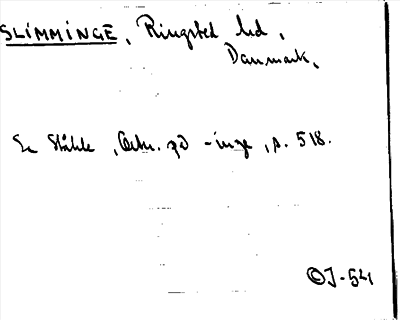 SLIMMINGE, Ringsted hd,
Danmark.
Se Ståhle, Ortn. på -inge, s. 518.
©J-54